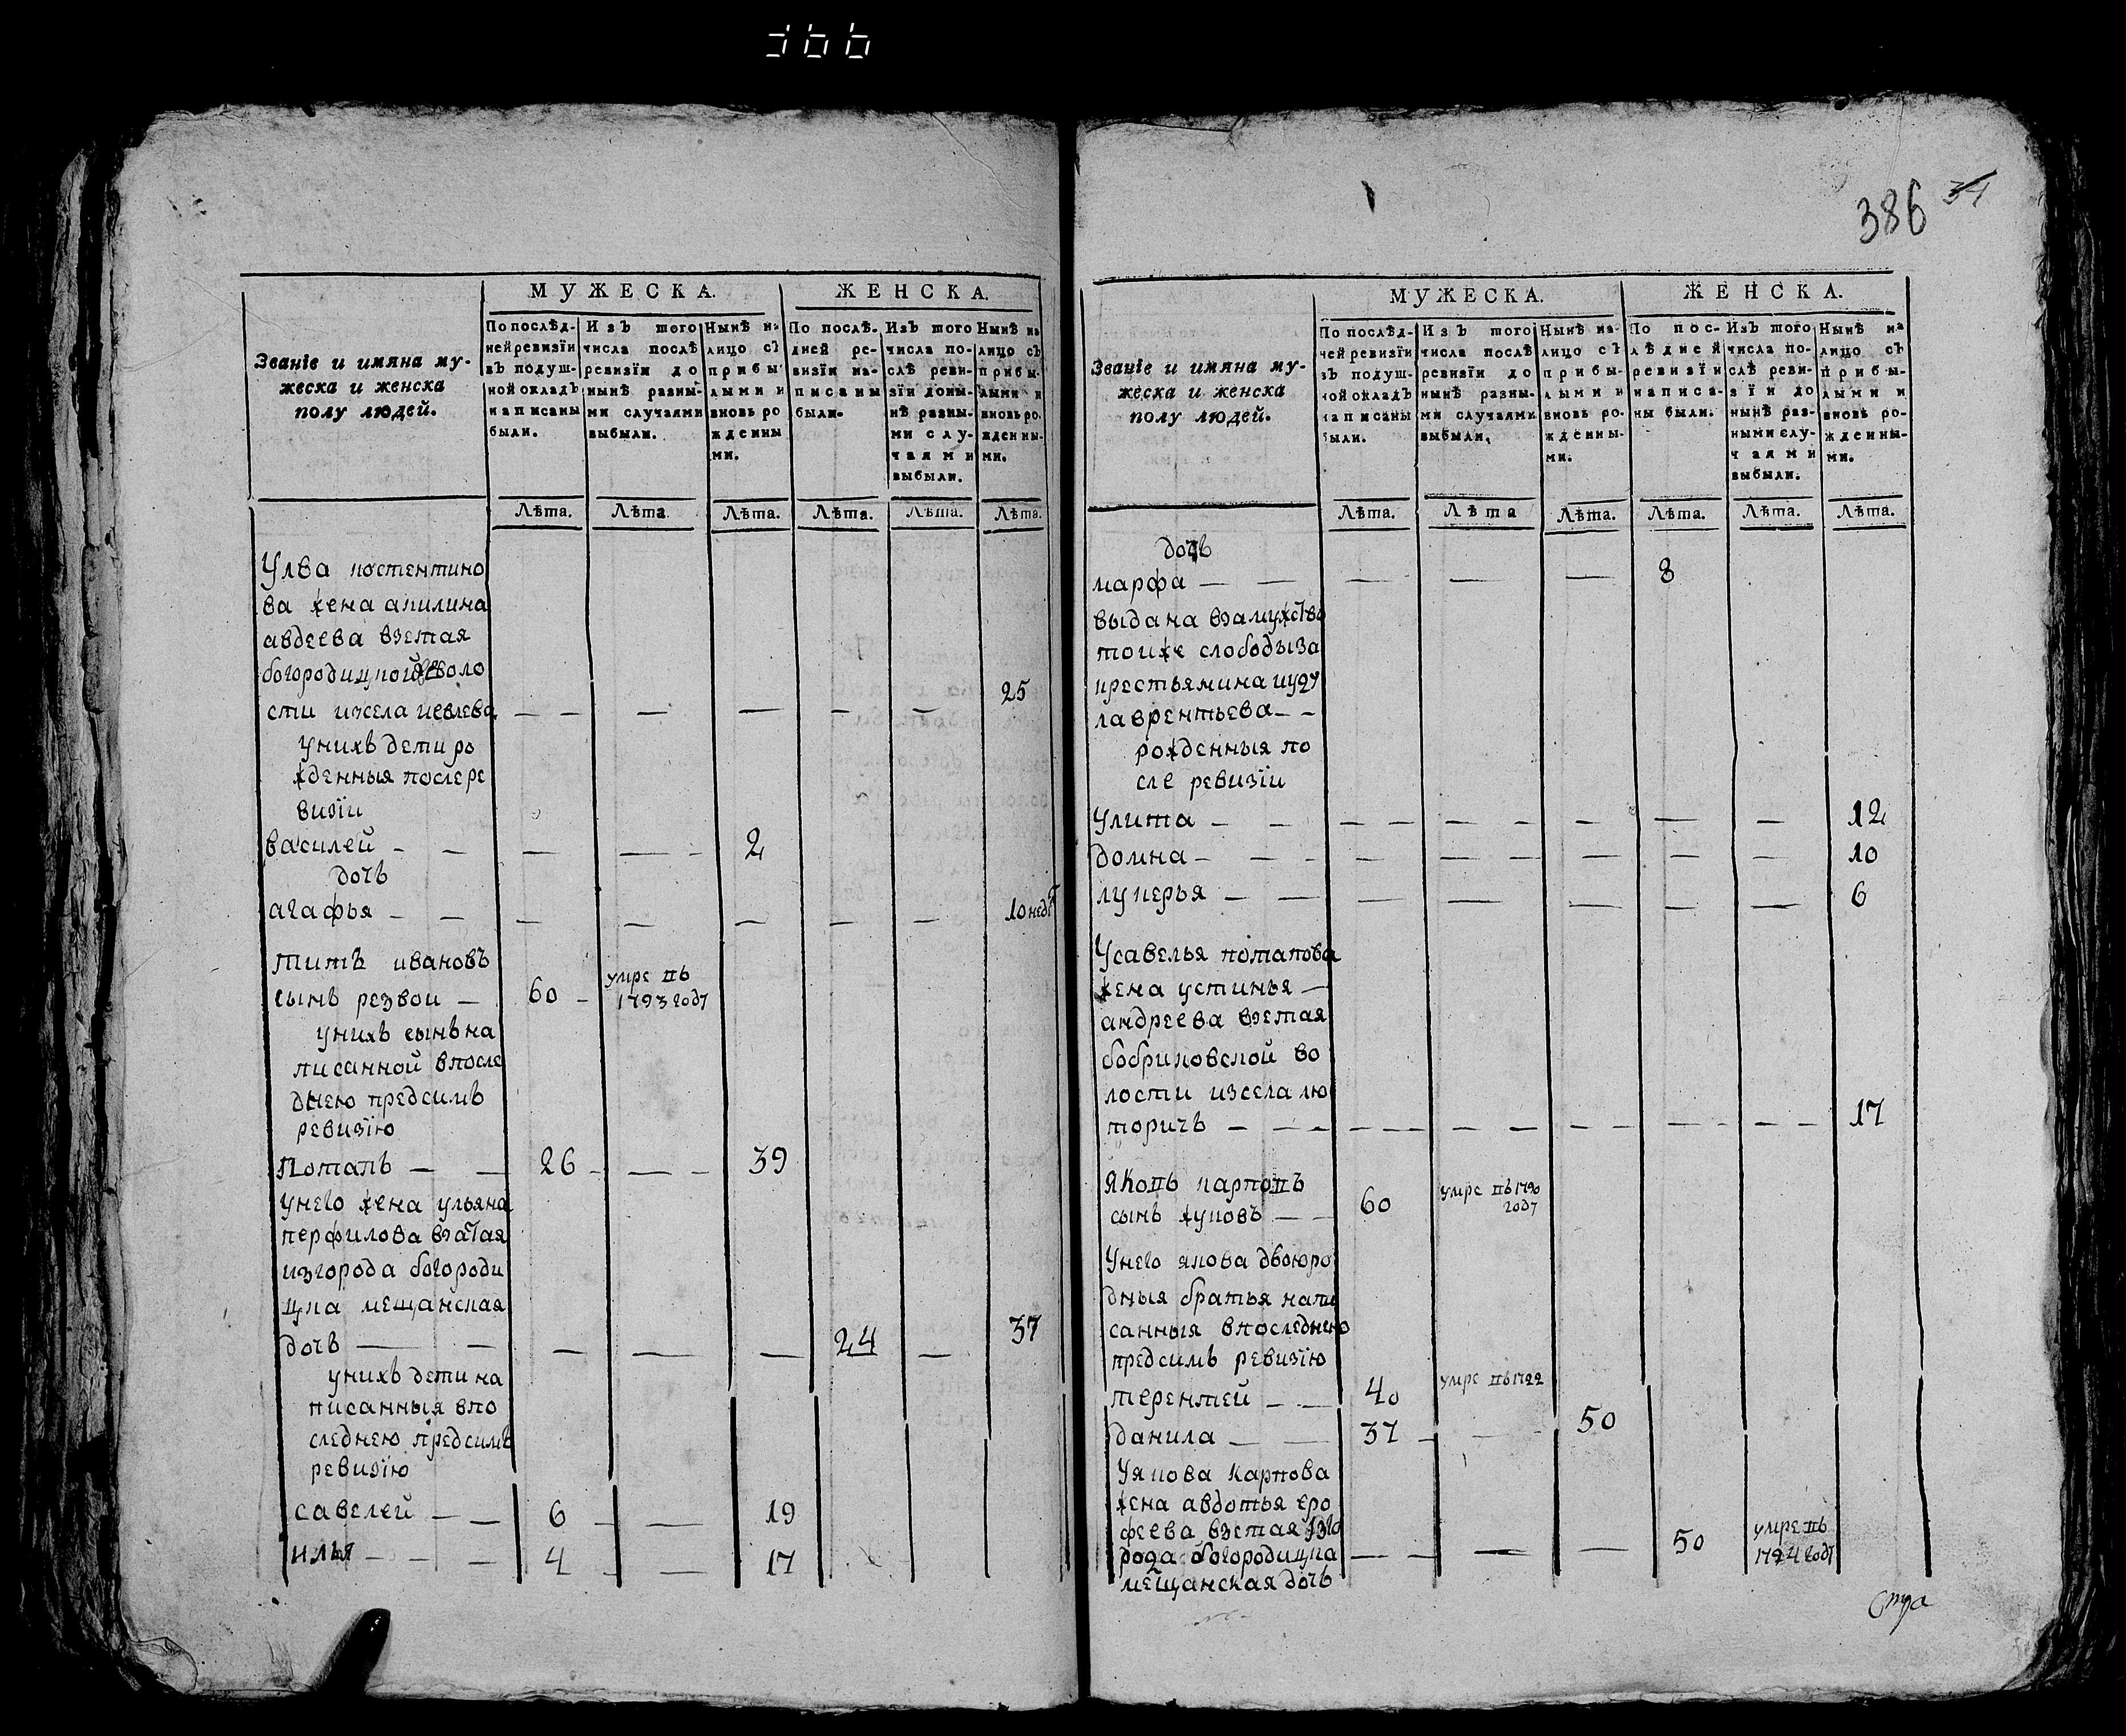 386 34
МУЖЕСКА. ЖЕНСКА.
Званіе и имяна му-
жеска и женска
полу людей.
По послѣд-
ней ревизїи
въ подуш-
ной окладъ
написаны
были.
Изъ того
числа послѣ
ревизїи до
нынѣ разны-
ми случаями
выбыли.
Нынѣ на
лицо съ
прибы
лыми и
вновь ро
жденны
ми.
По послѣ-
дней ре-
визїи на-
писаны
были.
Изъ того
числа по-
слѣ реви-
зїи доны-
нѣ разны-
ми слу-
чаями
выбыли.
Нынѣ на
лицо съ
прибы-
лыми и
вновь ро-
жденны-
ми.
Лѣта. Лѣта. Лѣта. Лѣта. Лѣта. Лѣта.
Улва костентино
ва жена акилина
авдеева взетая
богородицкой воло
сти изсела иевлева 25
унихъ дети ро
жденныя после ре
визїи
василей 2
дочь
агафья 10 недѣ
титъ ивановъ
сынъ резвои 60 умре въ
1793 году
унихъ сынъ на
писанной впосле
днею предсимъ
ревизїю
Потапъ 26 39
унего жена ульяна
перфилова взатая
изгорода богороди
цка мещанская
дочь 24 37
унихъ дети на
писанныя впо
следнею предсимъ
ревизїю
савелей 6 19
илья 4 17
МУЖЕСКА. ЖЕНСКА.
Званіе и имяна му-
жеска и женска
полу людей.
По послѣд-
ней ревизїи
въ подуш-
ной окладъ
написаны
были.
Изъ того
числа послѣ
ревизїи до
нынѣ разны-
ми случаями
выбыли.
Нынѣ на-
лицо съ
прибы-
лыми и
вновь ро-
жденны-
ми.
По пос-
лѣдней
ревизїи
написа-
ны были.
Изъ того
числа по-
слѣ реви-
зїи до
нынѣ раз-
ными слу-
чаями
выбыли.
Нынѣ на
лицо съ
прибы-
лыми и
вновь ро-
жденны-
ми.
Лѣта. Лѣта Лѣта. Лѣта. Лѣта. Лѣта.
дочь
марфа 8
выдана взамужство
тоиже слободы за
крестьянина
лаврентьева
рожденныя по
сле ревизїи
улита 12
домна 10
лукерья 6
Усавелья потапова
жена устинья
андреева взетая
бобриковской во
лости изсела лю
торичь 17
яковъ карповъ
сынъ жуковъ 60 умре въ 1790
году
Унего якова двоюро
дныя братья напи
санныя впоследнею
предсимъ ревизїю
терентей 40 умре въ 1722
данила 37 50
Уякова карпова
жена авдотья еро
феева взетая изго
рода богородицка 50 умре въ
1794 году
мещанская дочь